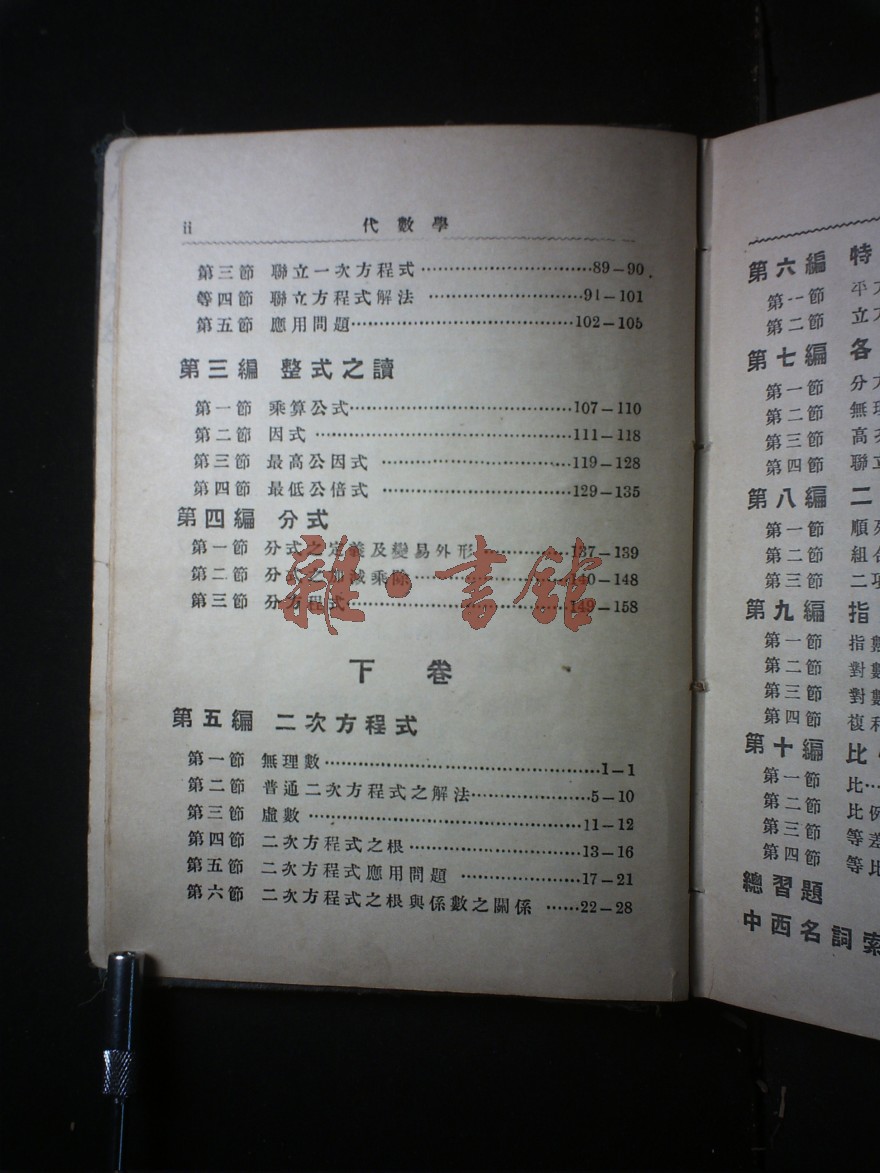 ii 代數學
第三節 聯立一次方程式……………………89—90
等四節 聯立方程式解法 …………………91—101
第五節 應用問題……………………………102—105
第三編 整式之讀
第一節 乘算公式……………………………107—110
第二節 因式 …………………………………111—118
第三節 最高公因式 …………………………119—128
第四節 最低公倍式 …………………………129—135
第四編 分式
第一節 分式之定義及變易外形 ……………137—139
第二節 分式之加減乘除……………………140—148
第三節 分方程式……………………………149—158
下卷
第五編 二次方程式
第一節 無理數…………………………………1—1
第二節 普通二次方程式之解法……………5—10
第三節 虛數 …………………………………11—12
第四節 二次方程式之根……………………13—16
第五節 二次方程式應用問題 ………………17—21
第六節 二次方程式之根與係數之關係 ……22—28
雜·書館
第六編 特
第一節 平方
第二節 立方
第七編 各
第一節 分方
第二節 無理
第三節 高次
第四節 聯立
第八編 二
第一節 順列
第二節 組合
第三節 二項
第九編 指
第一節 指數
第二節 對數
第三節 對數
第四節 複利
第十編 比
第一節 比…
第二節 比例
第三節 等差
第四節 等比
總習題
中西名詞索